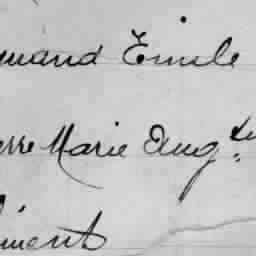 mand Emile
erre Marie Aug.
ment